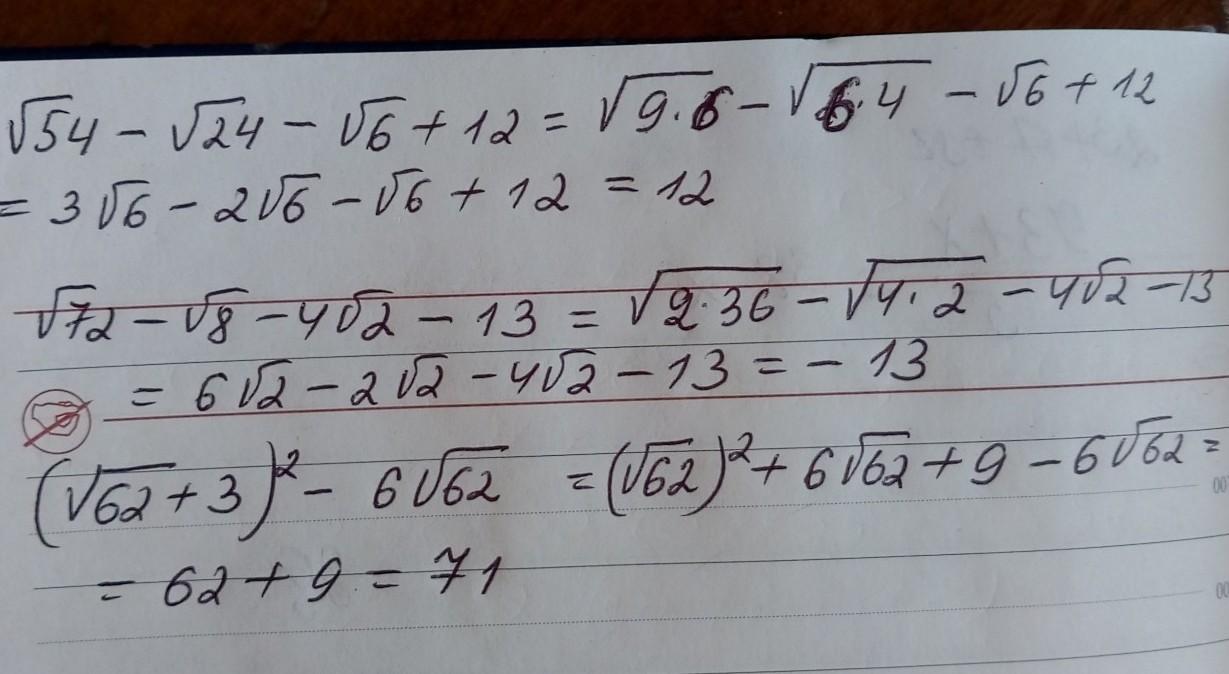 √54 - √24 - √6 + 12 = √9·6 - √6·4 - √6 + 12
= 3√6 - 2√6 - √6 + 12 = 12
√72 - √8 - 4√2 - 13 = √2·36 - √4·2 - 4√2 - 13
= 6√2 - 2√2 - 4√2 - 13 = - 13
(√62 + 3)² - 6√62 = (√62)² + 6√62 + 9 - 6√62 =
= 62 + 9 = 71